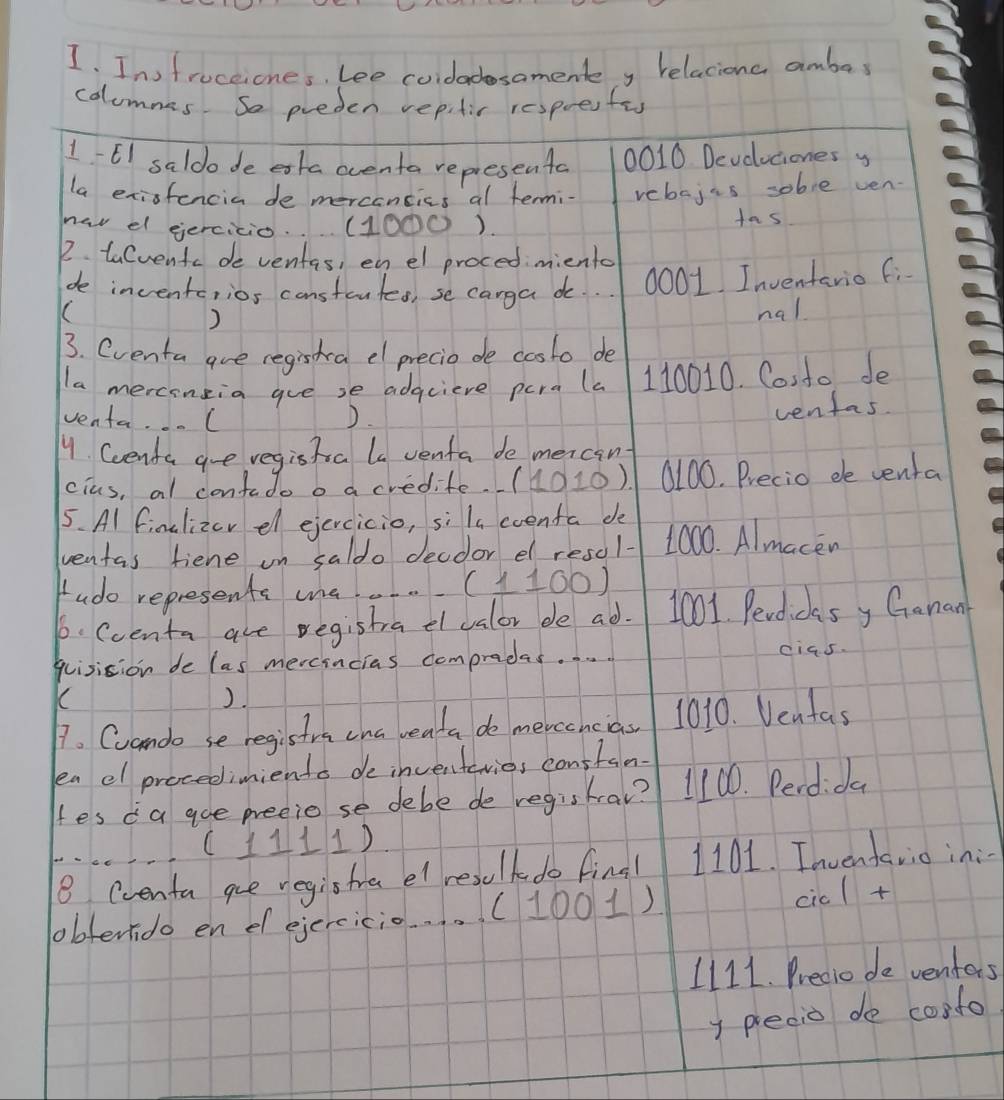 I. Instrucciones. Lee cuidadosamente y relaciona ambas
columnas. Se pueden repitir respuestas
1-El saldo de esta cuenta representa
la existencia de mercancias al termi-
nar el ejercicio.... (1000).
2. la Cuenta de ventas, en el procedimiento
de inventarios constantes, se carga de...
( )
3. Cuenta que registra el precio de costo de
la mercancia que se adquiere para la
venta... ( ).
4. Cuenta que registra la venta de mercan-
cias, al contado o a crédito... (1010).
5. Al finalizar el ejercicio, si la cuenta de
ventas tiene un saldo deudor el resul-
tado representa una..... (1100)
6. Cuenta que registra el valor de ad-
quisición de las mercancias compradas.....
( ).
7. Cuando se registra una venta de mercancias
en el procedimiento de inventarios constan-
tes ¿a que precio se debe de registrar?
......... (1111)
8 Cuenta que registra el resultado final
obtenido en el ejercicio...... (1001)
0010 Devoluciones y
rebajas sobre ven-
tas.
0001. Inventario fi-
nal.
110010. Costo de
ventas.
0100. Precio de venta
1000. Almacén
1001. Perdidas y Ganan-
cias.
1010. Ventas
1100. Perdida
1101. Inventario ini-
cial +
1111. Precio de ventas
y precio de costo